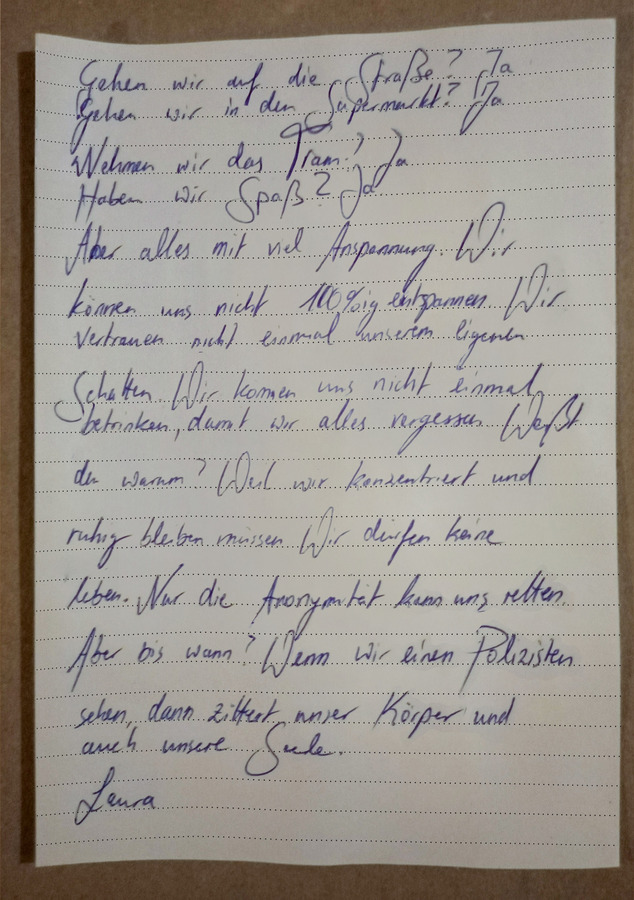 Gehen wir auf die Straße? Ja
Gehen wir in den Supermarkt? Ja
Nehmen wir das Tram? Ja
Haben wir Spaß? Ja
Aber alles mit viel Anspannung. Wir
können uns nicht 100%ig entspannen. Wir
vertrauen nicht einmal unserem eigenen
Schatten. Wir können uns nicht einmal
betrinken, damit wir alles vergessen. Weißt
du warum? Weil wir konzentriert und
ruhig bleiben müssen. Wir dürfen keine
leben. Nur die Anonymität kann uns retten.
Aber bis wann? Wenn wir einen Polizisten
sehen, dann zittert unser Körper und
auch unsere Seele.
Laura